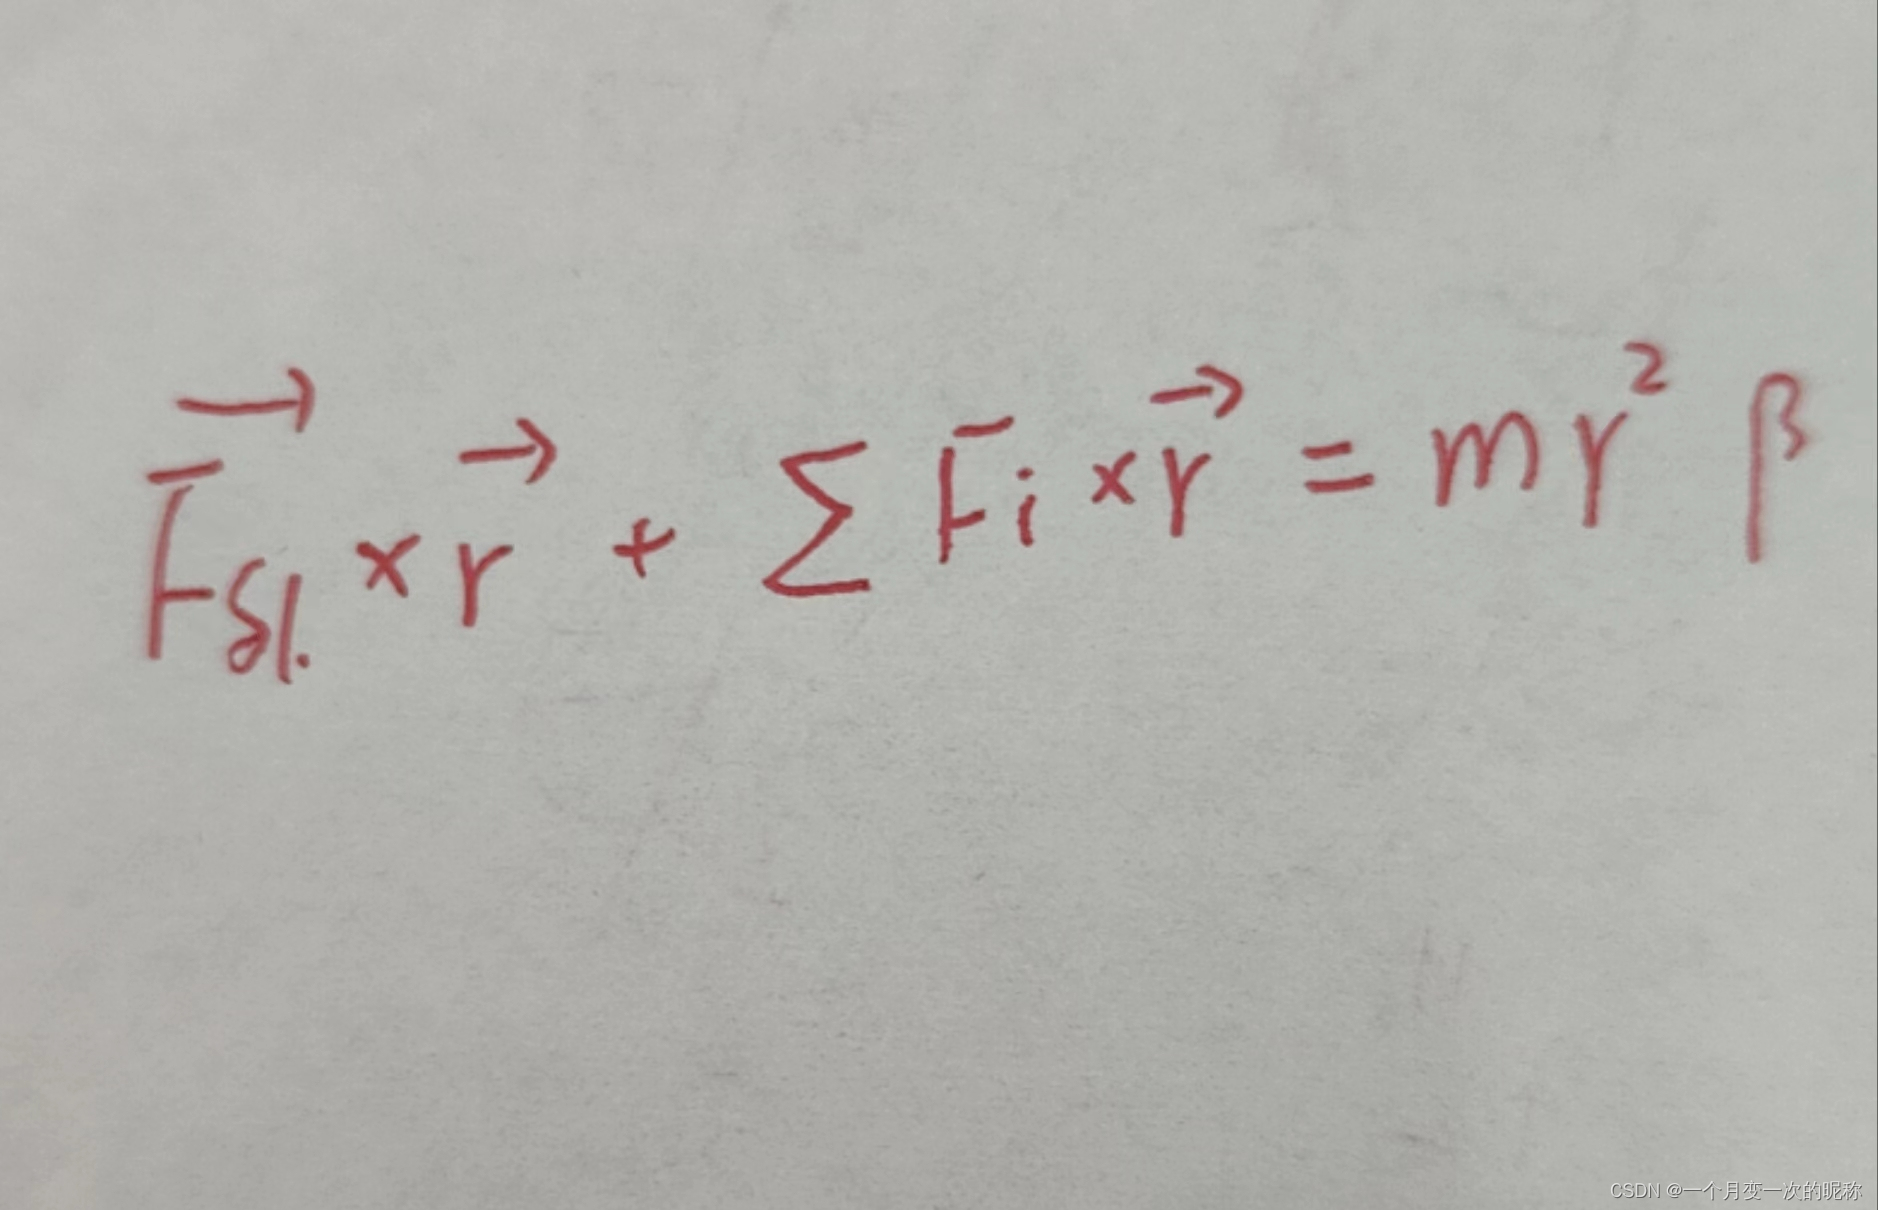 $\overrightarrow{F_{外}} \times \vec{r} + \sum F_i \times \vec{r} = m r^2 \beta$
CSDN @一个月变一次的昵称